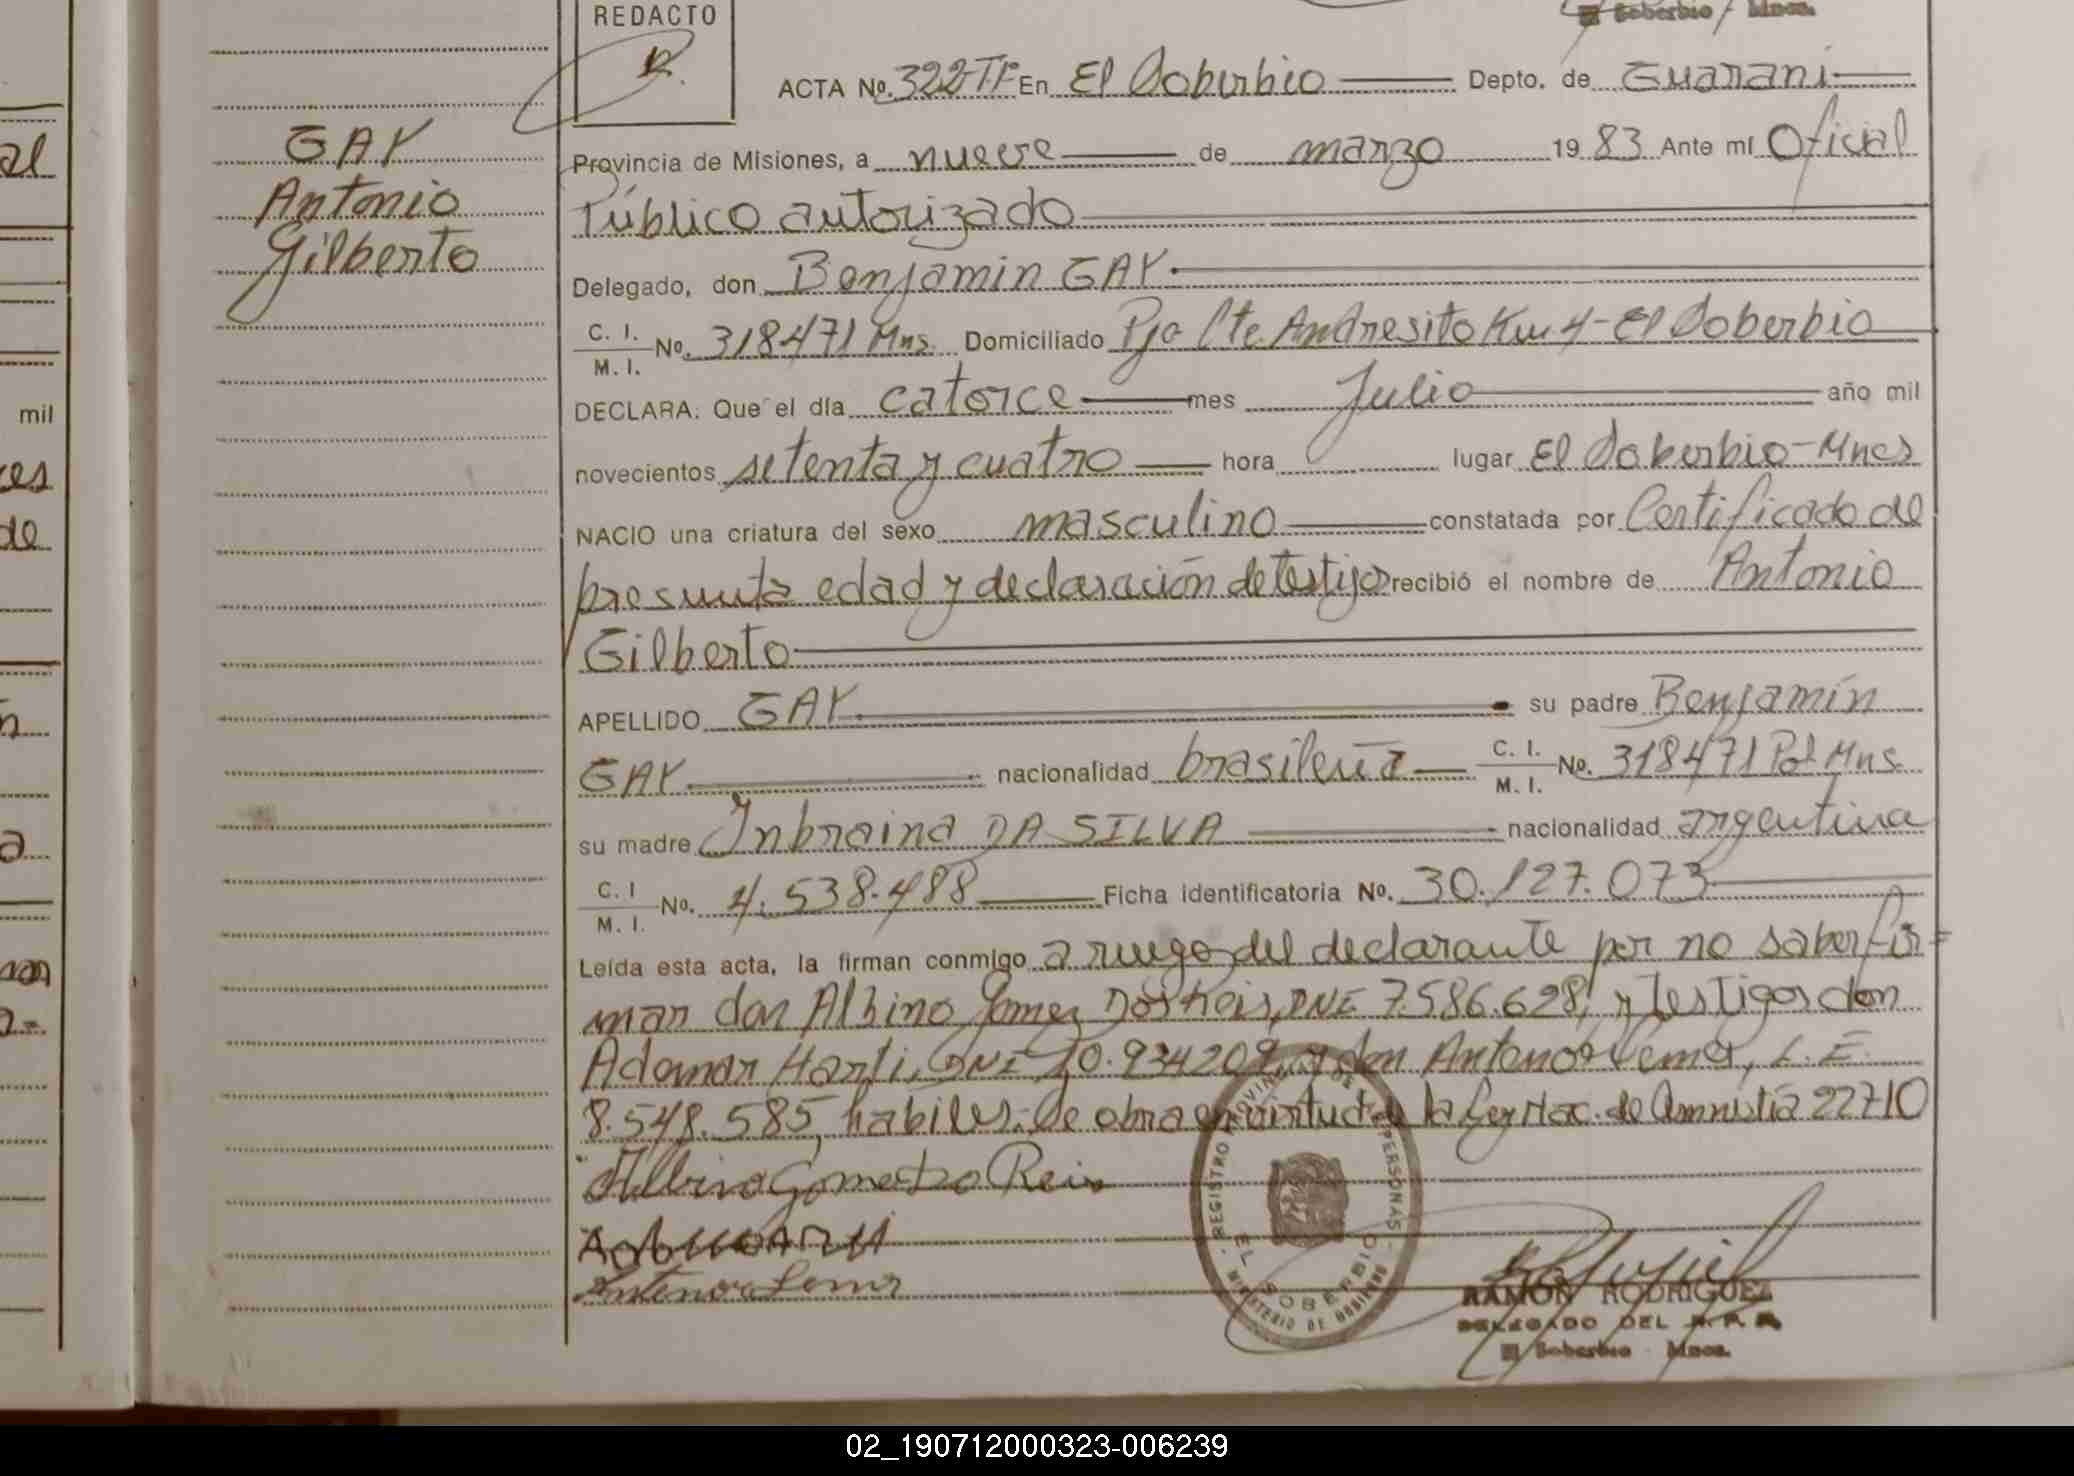 REDACTO
Soberbio Mnes.
ACTA No. 322-TF En El Soberbio Depto. de Guaraní
Provincia de Misiones, a nueve de marzo 19 83 Ante mí Oficial
Público autorizado
Delegado, don Benjamin GAY
C. I. M. I. No. 318471 Mns. Domiciliado Pje Cte. Andresito Km 4-El Soberbio
DECLARA: Que el día catorce mes Julio año mil
novecientos setenta y cuatro hora lugar El Soberbio-Mnes
NACIO una criatura del sexo masculino constatada por Certificado de
presunta edad y declaración de testigos recibió el nombre de Antonio
Gilberto
APELLIDO GAY su padre Benjamín
GAY nacionalidad brasileña C. I. M. I. No. 318471 Pol Mns.
su madre Inbraina DA SILVA nacionalidad argentina
C. I M. I. No. 4.538.488 Ficha identificatoria No. 30.127.073
Leída esta acta, la firman conmigo a ruego del declarante por no saber fir=
mar don Albino Gomez Dos Reis, DNI 7.586.628, y testigos don
Ademar Hartl, DNI 10.934209, y don Antenor Lema, L.E.
8.548.585, habiles.-Se obra en virtud de la Ley Nac. de Amnistia 22710
Albino Gomes Do Reis
Antenor Lema
REGISTRO PROVINCIAL DE LAS PERSONAS
EL SOBERBIO
MINISTERIO DE GOBIERNO
RAMON RODRIGUEZ
DELEGADO DEL R.P.P.
El Soberbio Mnes.
GAY
Antonio
Gilberto
al
mil
es
de
n
a
man
a=
02_190712000323-006239